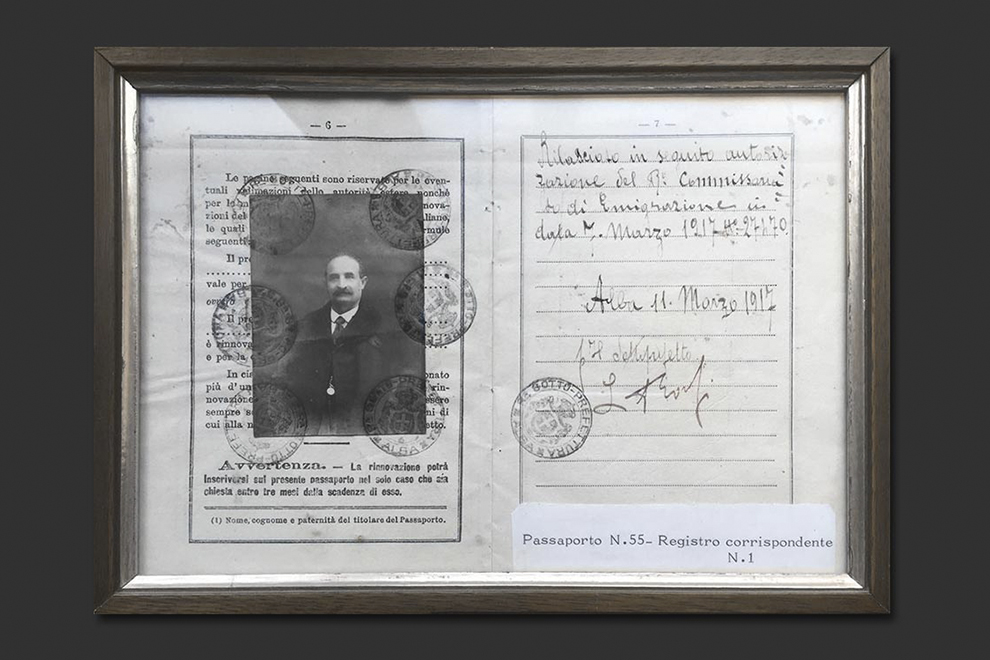 — 6 —
Le pagine seguenti sono riservate per le even-
tuali vidimazioni delle autorità estere nonché
per le nnova-
zioni del aliane,
le quali ormule
seguenti
Il pre
vale per
Il pre
è rinnova
e per la
In ca onato
più d'un rin-
novazione essere
sempre se ni di
cui alla n etto.
Avvertenza. — La rinnovazione potrà
inscriversi sul presente passaporto nel solo caso che sia
chiesta entro tre mesi dalla scadenza di esso.
(1) Nome, cognome e paternità del titolare del Passaporto.
— 7 —
Rilasciato in seguito autoriz-
zazione del R° Commissaria
to di Emigrazione in
data 7. Marzo 1917 N° 27170
Alba 11. Marzo 1917
Il Sottoprefetto
SOTTO-PREFETTURA ALBA
Passaporto N.55- Registro corrispondente
N.1